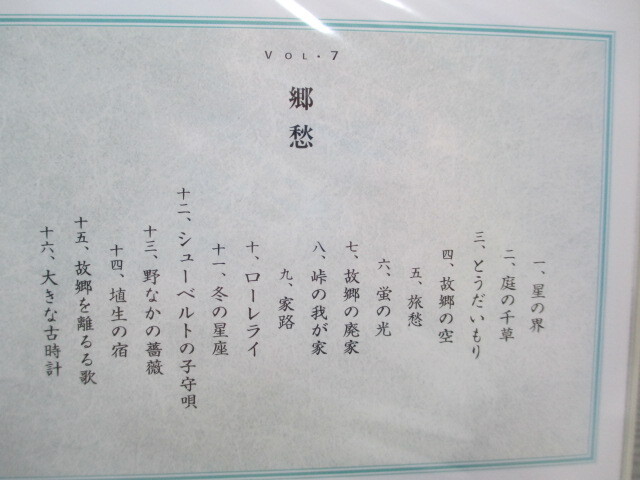 VOL・7
郷愁
一、星の界
二、庭の千草
三、とうだいもり
四、故郷の空
五、旅愁
六、蛍の光
七、故郷の廃家
八、峠の我が家
九、家路
十、ローレライ
十一、冬の星座
十二、シューベルトの子守唄
十三、野なかの薔薇
十四、埴生の宿
十五、故郷を離るる歌
十六、大きな古時計